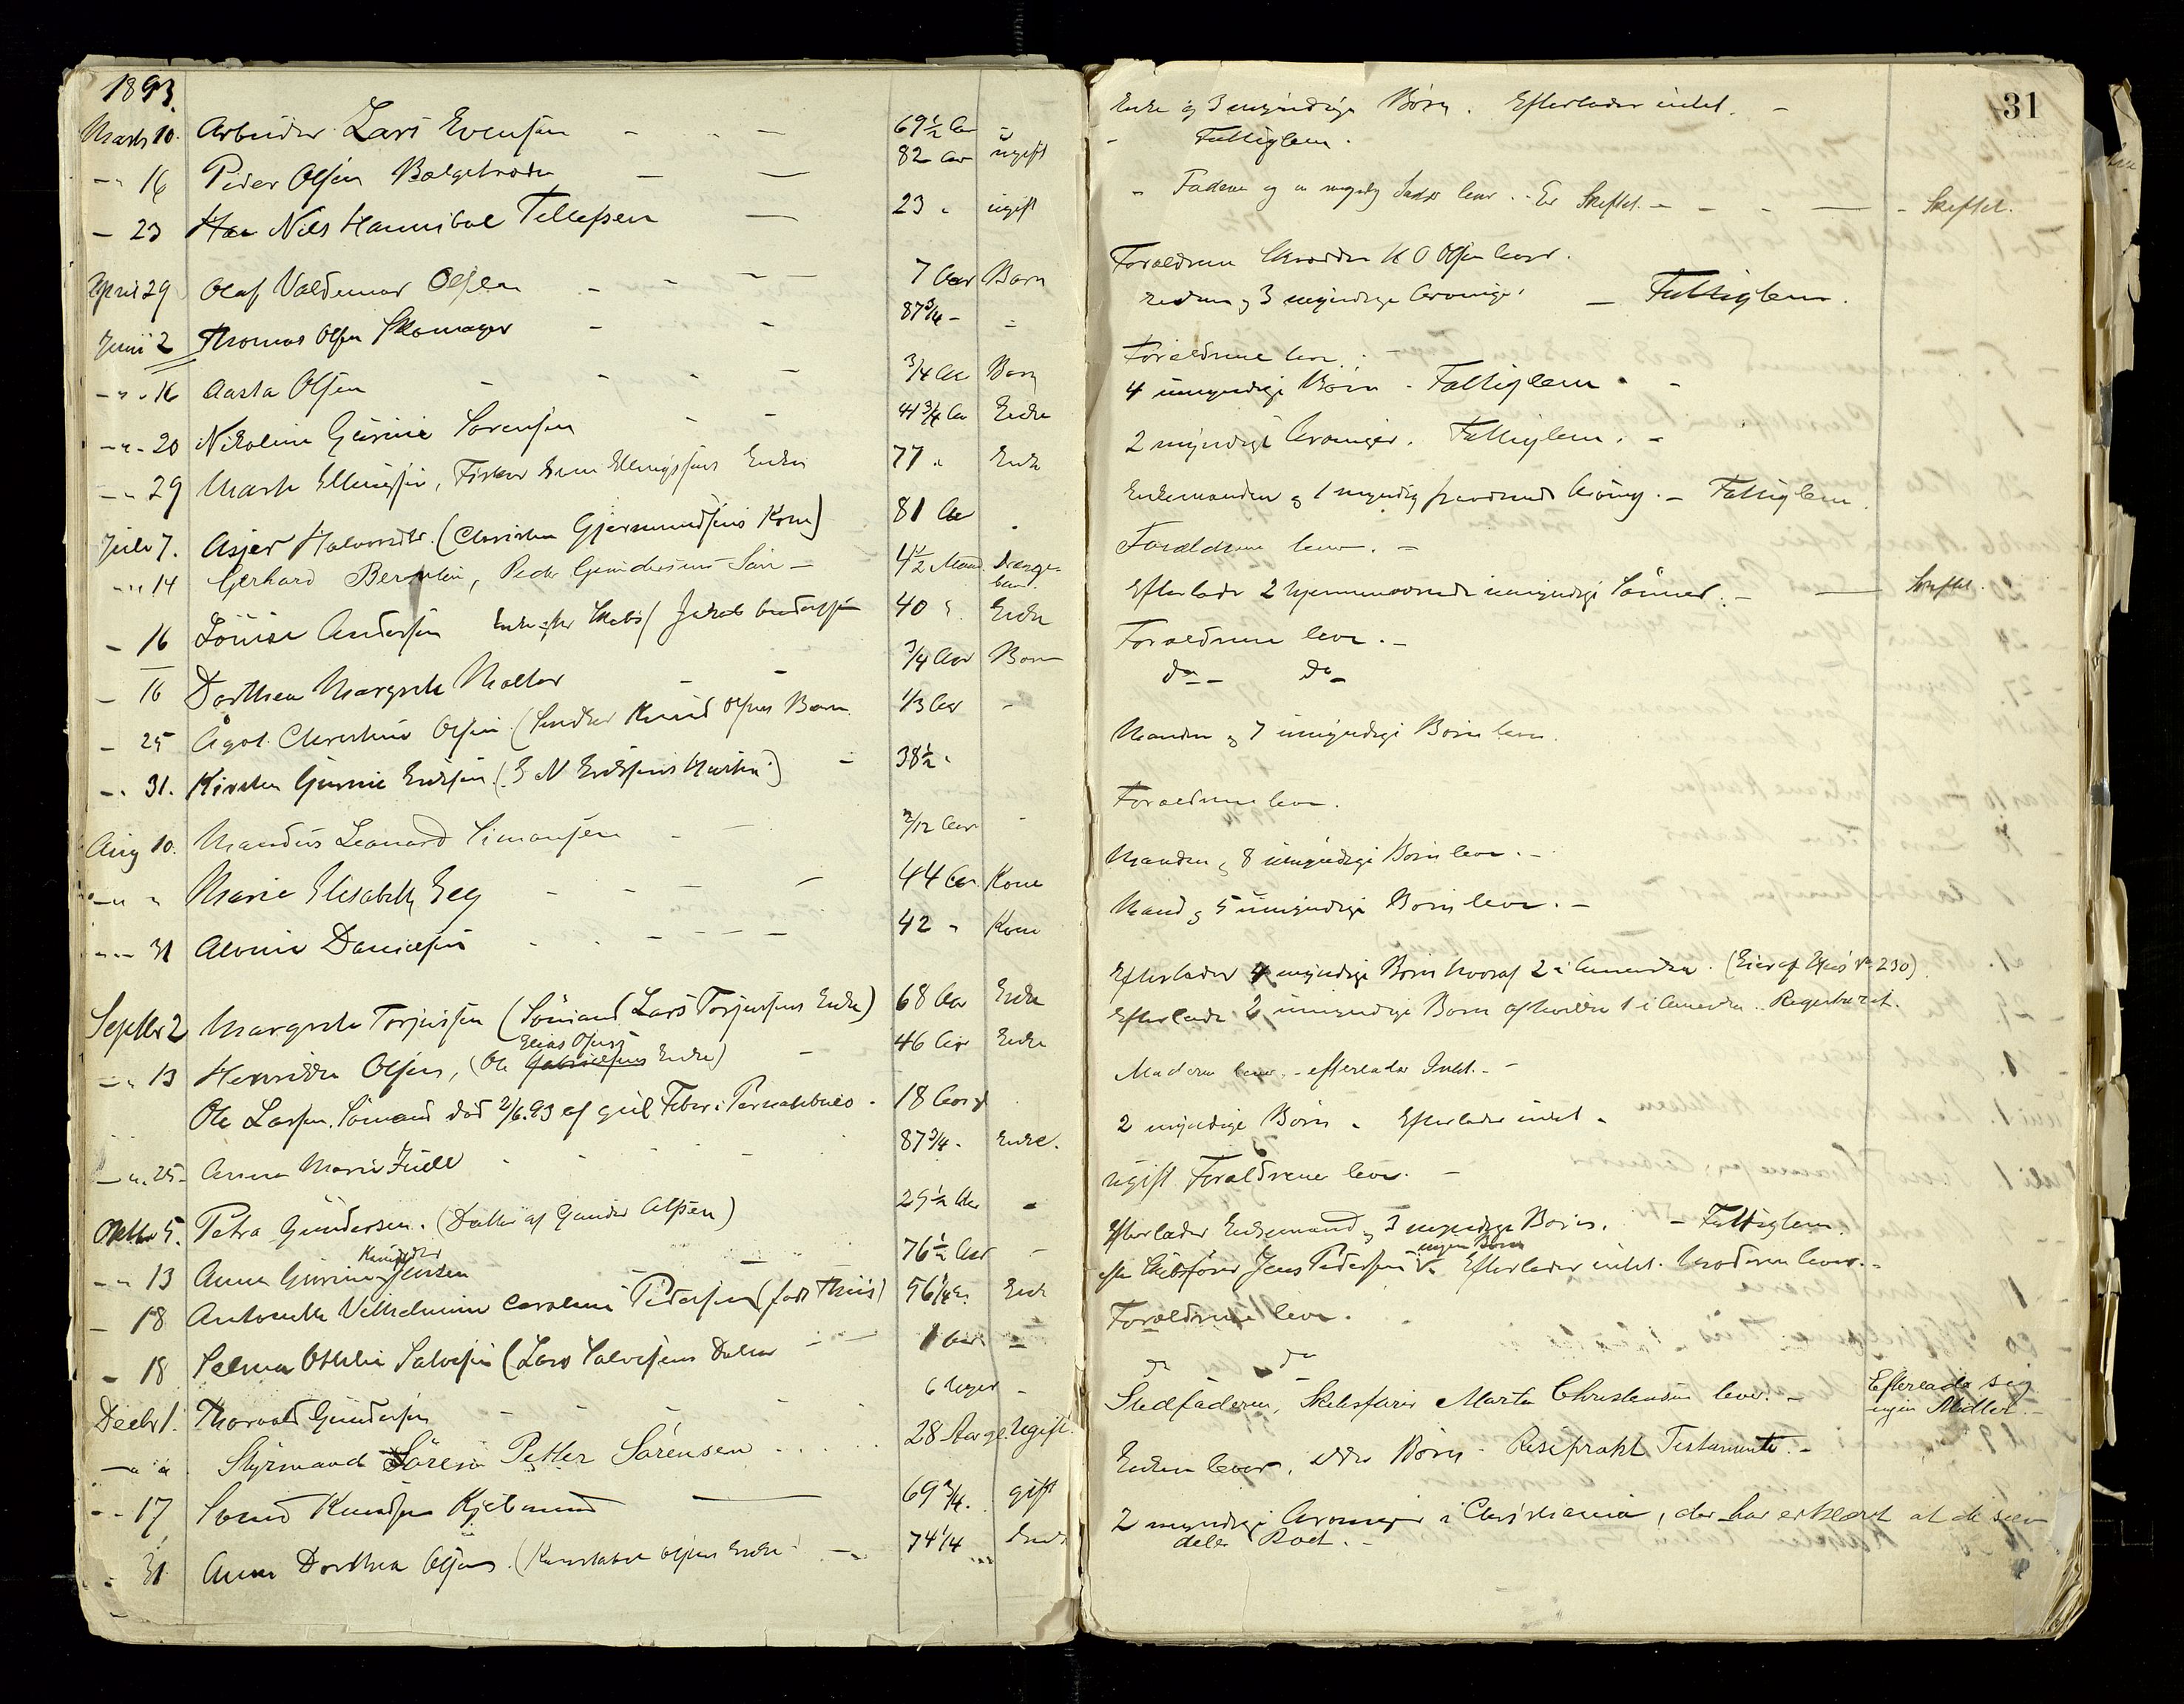 1893.
Marts 10. Arbeider Lars Evensen - - - 69½ Aar -
-" 16 Peder Olsen Bolgetraden - - 82 Aar ugift
- 23 Nils Hannibal Tellefsen - 23 " ugift
April 29 Olaf Valdemar Olsen - - - - 7 Aar Barn
Juni 2 Thomas Olsen Skomager - - 87¾ - -
-"-16 Aasta Olsen - - - - ¾ Aar Barn
-"-20 Nikoline Gurine Sørensen - - 41¾ Aar Enke
-"29 Marte Ellingsen, Fisker Ellingsens Enke 77 " Enke
Juli 7. Asjer Halvorsdtr. (Christen Gjermundsens Kone) 81 Aar "
-"14 Gerhard Berntin, Peder Gundersens Søn - 4½ Maan. Drenge-
barn
- 16 Louise Andersen Enke efter Skibsf Jakob Andersen 40 " Enke
- 16 Dorthea Margrethe Møller - ¾ Aar Barn
- 25 Agot Christine Olsen (Knud Olsens Barn 1/3 Aar -
-" 31. Kirsten Gurine Eriksen. (E N Eriksens Hustru) - 38½ "
Aug 10. Mandius Leonard Simonsen - - 2/12 Aar -
-" " Marie Elisabeth Eeg - - - - 44 Aar Kone
-"- 31 Alvine Danielsen - - - - - 42 " Kone
Septbr 2 Margrethe Torjussen (Sømand Lars Torjussens Enke) 68 Aar Enke
Elias Olsens
-" 13 Henrikke Olsen, (Ole Gabrielsens Enke) - 46 Aar Enke
Ole Larsen. Sømand død 2/6.93 af gul Feber i Pernambuco - 18 Aar
-"-25- Anna Marie Juell - - - - 87¾ - Enke.
Oktbr 5. Petra Gundersen. (Datter af Gunder Olsen) 29½ Aar "
Knudsdtr
-" 13 Anna Gurine Jensen 76½ Aar -
- 18 Antonette Vilhelmine Caroline Pedersen (født Thiis) 56¼ Enke
- 18 Selma Othilie Salvesen (Lars Salvesens Datter - 1 Aar =
Decbr 1. Thorvald Gundersen - - - - 6 Uger -
-" " Styrmand Søren Petter Sørensen . . . . . 28 Aar gl. Ugift.
- - 17 Svend Knudsen Kjebmund - 69¾. gift
- 31 Anna Dorthea Olsens (Konstabel Olsens Enke) - 74¼ Enke
31
Enke og 3 myndige Børn. Efterlader intet. -
- Fattiglem.
- Faderen og en myndig Søster lever. - Er Skiftet. - - - - Skiftet.
Forældrene N O Olsen lever.
Enken og 3 myndige Arvinger. - Fattiglem.
Forældrene lever.
4 umyndige Børn - Fattiglem. -
2 myndige Arvinger. Fattiglem. -
Enkemanden og 1 myndig fraværende Arving. - Fattiglem.
Forældrene lever. -
Efterlader 2 hjemmeværende umyndige Sønner. - - Skiftet.
Forældrene lever. -
do - do -
Manden og 7 umyndige Børn lever.
Forældrene lever.
Manden og 8 umyndige Børn lever. -
Mand og 5 umyndige Børn lever. -
Efterlader 4 myndige Børn hvoraf 2 i Amerika. (Eier af Huus No 230)
Efterlader 2 umyndige Børn af hvilke 1 i Amerika. Registreret.
Moderen lever. - efterlader Intet. -
2 myndige Børn. Efterlader intet.
Ugift Forældrene lever. -
Efterlader Enkemand og 3 myndige Børn. - Fattiglem.
ingen Børn
efter Skibsfører Jens Pedersen. Efterlader intet. Moderen lever. -
Forældrene lever.
do do
Stedfaderen, Skibsfører Martin Christensen lever. - Efterlader sig
ingen Midler. -
Enken lever, Børn - Resiprokt Testamente. -
2 myndige Arvinger i Christiania, der har erklæret at de selv
deler Boet. -